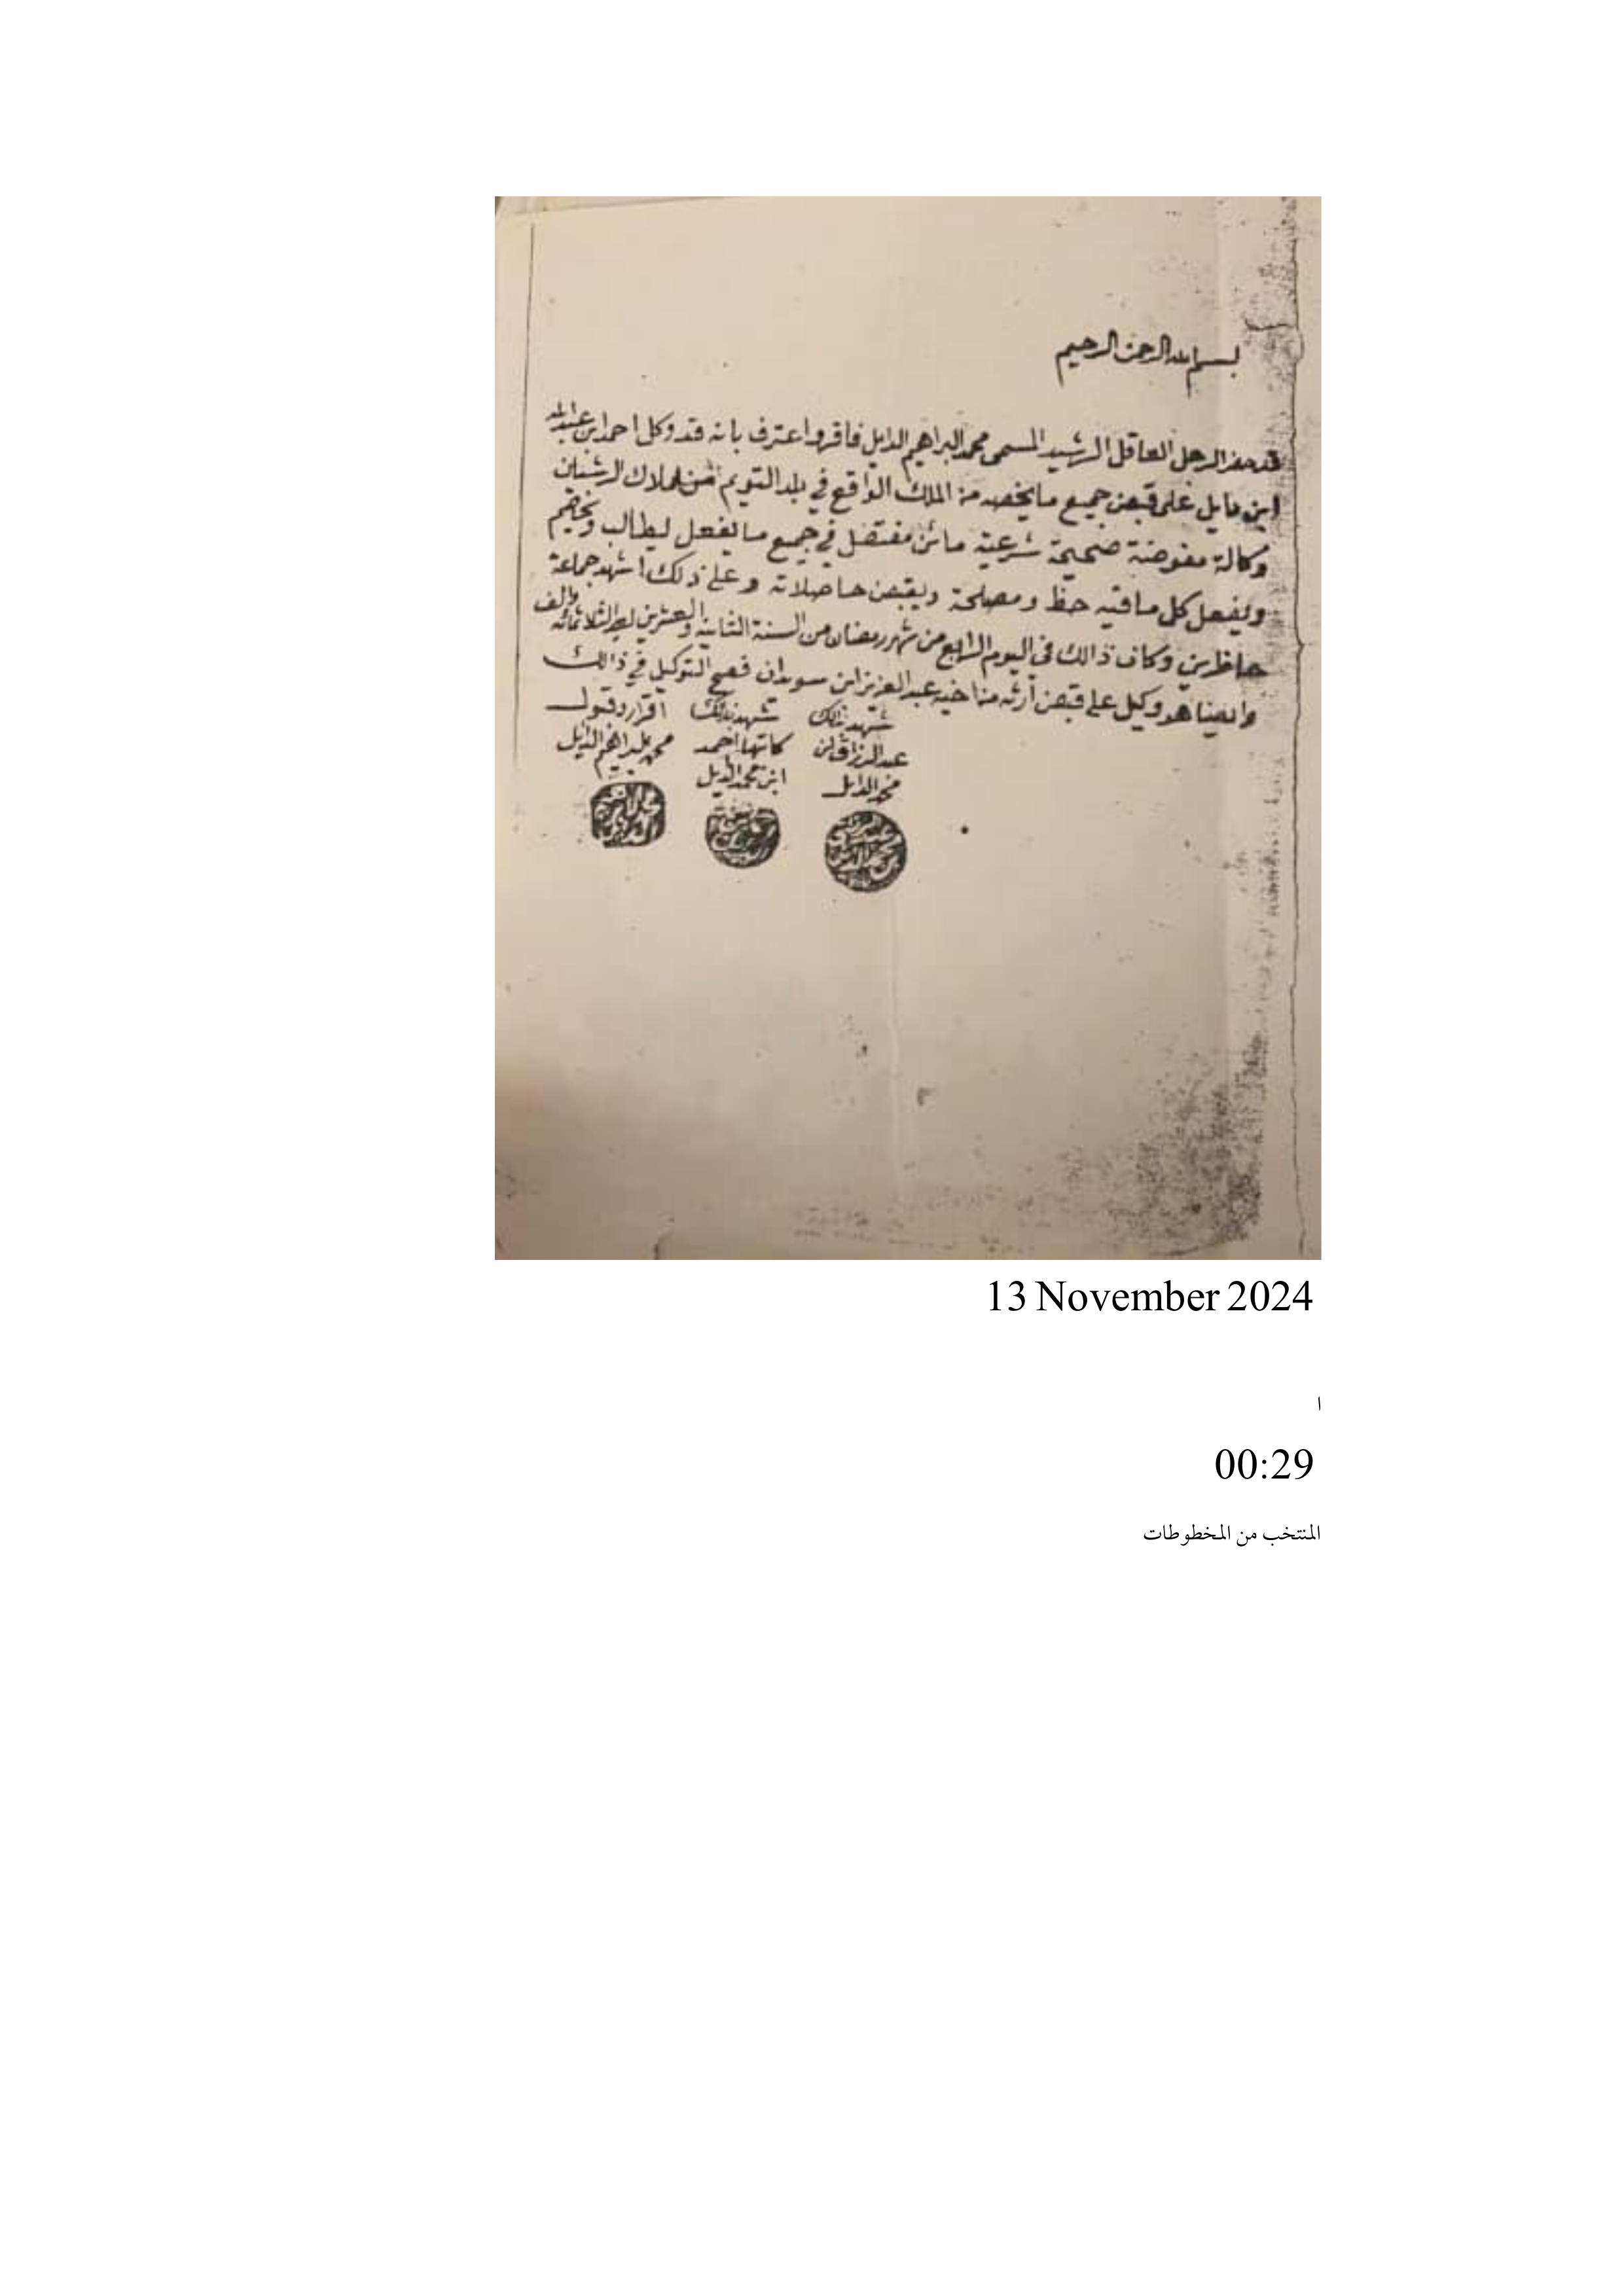 بسم الله الرحمن الرحيم
قد حضر الرجل العاقل الرشيد المسمى محمد البراهيم الدايل فاقر واعترف بانه قد وكل احمد ابن عبدالله
ابن دايل على قبض جميع ما يخصه من الملك الواقع في بلد التويم من املاك الرشبان
وكالة مفوضة صحيحة شرعية في جميع ما يفعل ليطالب ويخصم
ويفعل كل ما فيه حظ ومصلحة ويقبض حاصلاته وعلى ذلك اشهد جماعة
حاظرين وكان ذالك في اليوم الرابع من شهر رمضان من السنة الثانية والعشرين بعد الثلاثمائه والف
وايضا هو وكيل على قبض ارثه من اخيه عبد العزيز ابن سويدان فصح التوكيل في ذالك
شهد بذلك شهد بذلك اقرار وقبول
عبد الرزاق ابن كاتبها احمد محمد البراهيم الدايل
محمد الدايل ابن محمد الدايل
13 November 2024
ا
00:29
المنتخب من المخطوطات